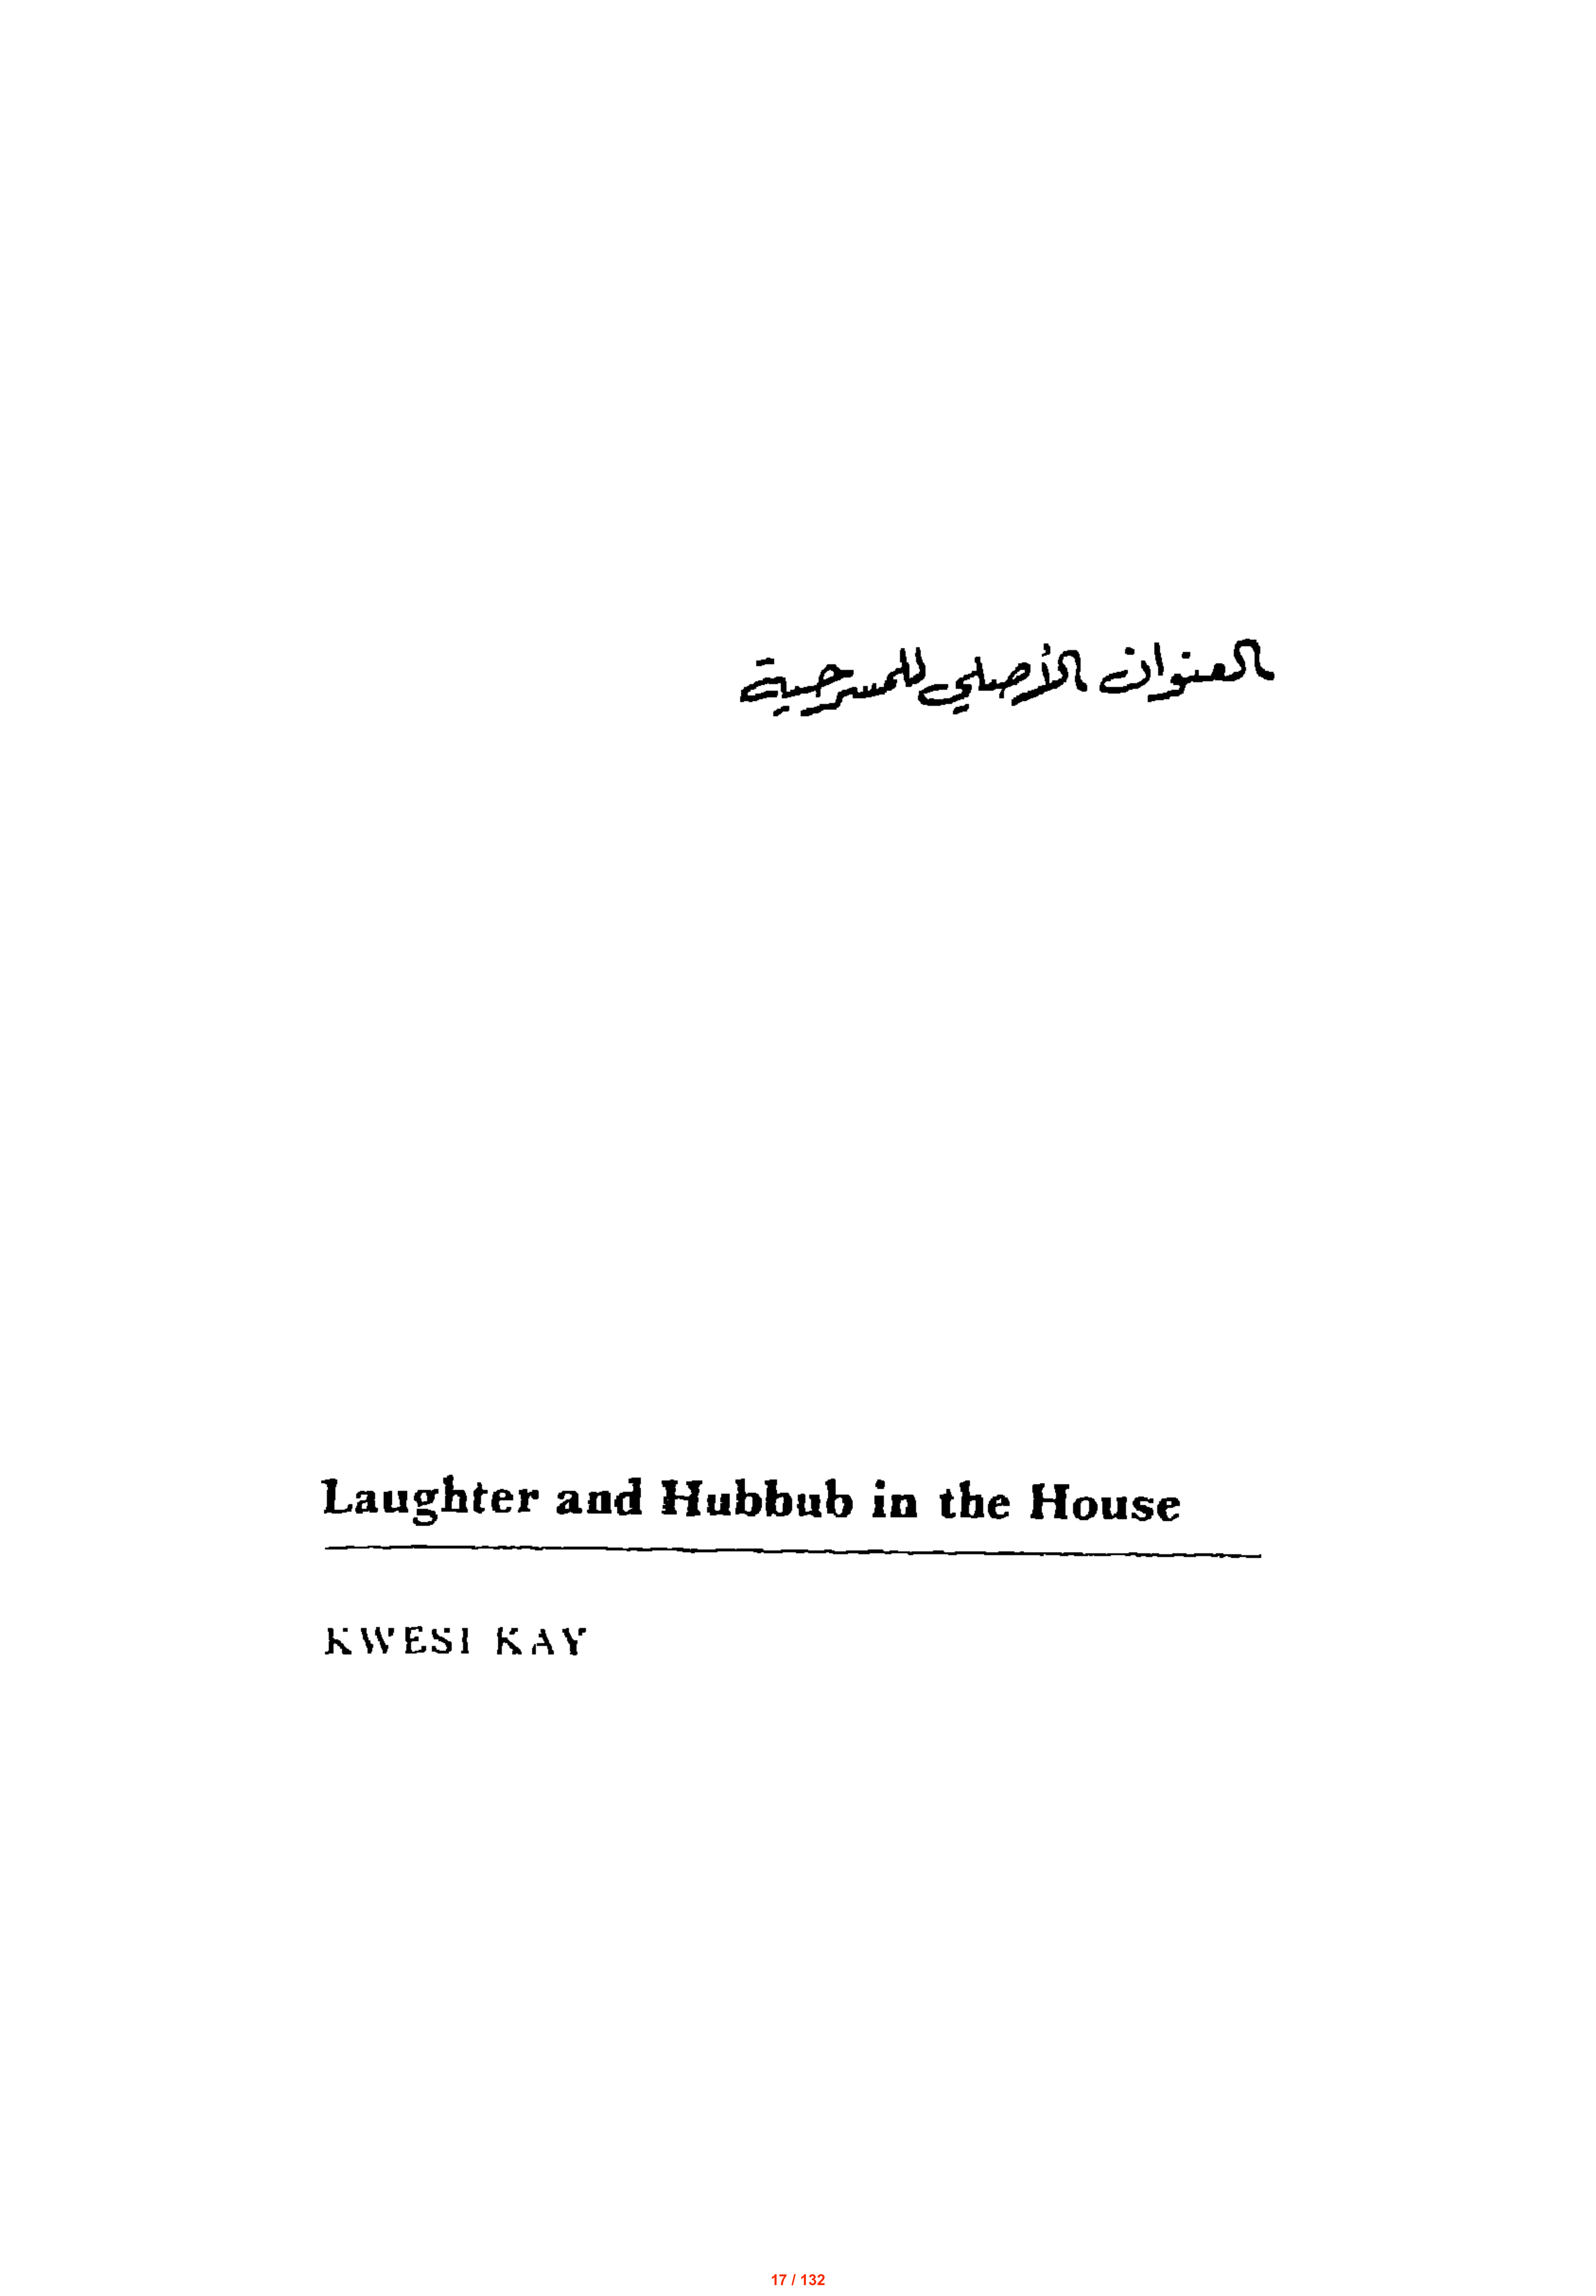 العنوان الأصلي للمسرحية
Laughter and Hubbub in the House
KWESI KAY
17 / 132